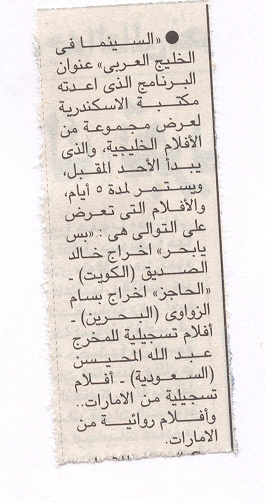 ● «السينما فى
الخليج العربى» عنوان
البرنامج الذى اعدته
مكتبة الاسكندرية
لعرض مجموعة من
الأفلام الخليجية، والذى
يبدأ الأحد المقبل،
ويستمر لمدة ٥ أيام،
والأفلام التى تعرض
على التوالى هى : «بس
يابحر» اخراج خالد
الصديق (الكويت) ـ
«الحاجز» اخراج بسام
الزواوى (البحرين) ـ
أفلام تسجيلية للمخرج
عبد الله المحيسن
(السعودية) ـ أفلام
تسجيلية من الامارات..
وأفلام روائية من
الامارات.